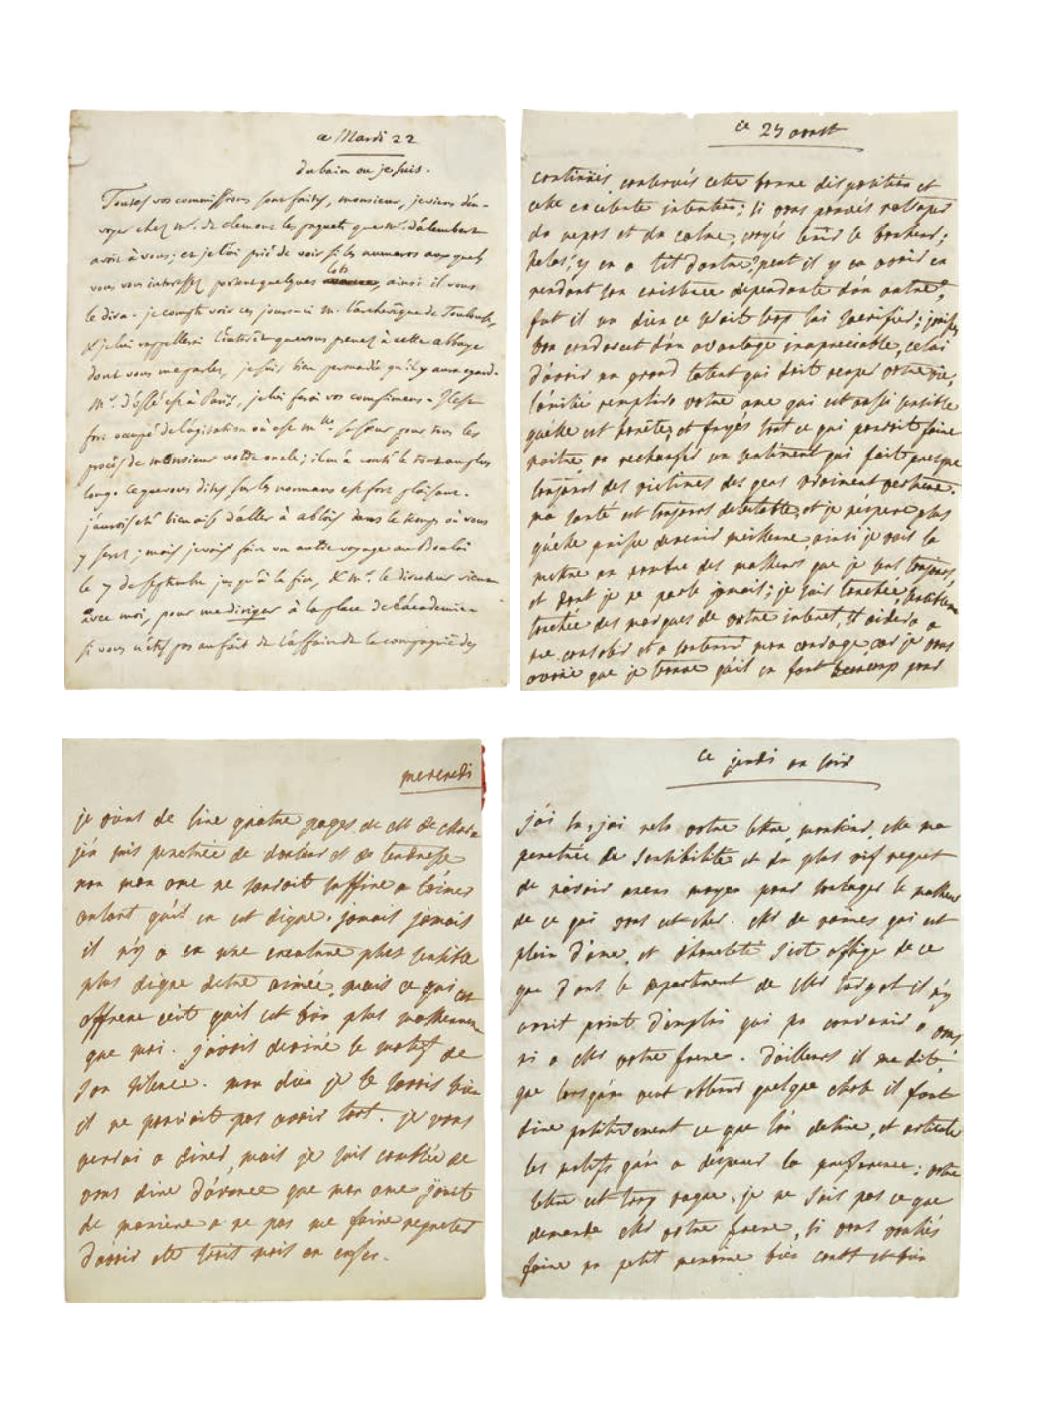 ce Mardi 22
du bain ou je suis.
Toutes vos commissions sont faites, monsieur, je viens d'en-
voyer chez mr. de clemens les paquets que mr. d'alembert
avoit à vous; et je l'ai prié de voir si les numeros auxquels
vous vous interessez portent quelques lots, ainsi il vous
le dira. je compte voir ces jours-ci mr. l'archevêque de Toulouse,
& je lui rappellerai l'intérêt que vous prenez à cette abbaye
dont vous me parlez, je suis bien persuadé qu'il y aura egard.
Mr. d'ussé est à Paris, je lui ferai vos complimens. Il est
fort occupé de la situation où est mlle. sa soeur pour tous les
procès de monsieur votre oncle; il m'a conté le tout au plus
long. ce que vous dites sur les normans est fort plaisant.
j'aurois été bien aise d'aller à ablois dans le temps où vous
y serez; mais je vais faire un autre voyage au Boulai
le 7 de septembre jusqu'à la fin, & mr. le directeur vient
avec moi, pour me diriger à la place de l'académie.
si vous n'êtes pas au fait de l'affaire de la compagnie des
ce 25 aoust
continués, conservés cette bonne disposition et
cette excelente intention; si vous pouvés retrouver
du repos et du calme, croyés tenir le bonheur;
helas! y en a t'il d'autre? peut il y en avoir en
rendant son existence dependante d'un autre?
fut il un dieu ce seroit trop lui sacrifier; jouissés
bon condorcet d'un avantage inapreciable, celui
d'avoir un grand talent qui doit remplir votre vie,
l'amitié remplira votre ame qui est aussi sensible
quelle est honete, et fuyés tout ce qui pouroit faire
naitre, ou rechaufer un sentiment qui fait presque
toujours des victimes des gens vraiment vertueux.
ma santé est toujours detestable, et je n'espere plus
quelle puisse devenir meilleure, ainsi je vais la
mettre au nombre des malheurs que je sens toujours,
et dont je ne parle jamais; je suis touchée,
touchée des marques de votre interet, il aidera a
me consoler et a soutenir mon courage, car je vous
avoue que je trouve qu'il en faut beaucoup pour
mercredi
je viens de lire quatre pages de
j'en suis penetrée de douleur et de tendresse
non mon ame ne sauroit suffire a l'aimer
autant qu'il en est digne. jamais jamais
il n'y a eu une creature plus sensible
plus digne detre aimée, mais ce qui est
affreux c'est quil est bien plus malheureux
que moi. j'avois deviné le motif de
son silence. mon dieu je le savois bien
il ne pouvoit pas avoir tort. je vous
verrai a diner, mais je suis
vous dire d'avance que mon ame jouit
de maniere a ne pas me faire regretter
d'avoir été trois mois en enfer.
ce jeudi au soir
j'ai lu, j'ai relu votre lettre, monsieur, elle ma
penetrée de sensibilité et du plus vif regret
de n'avoir aucun moyen pour soulager le malheur
de ce qui vous est cher. Mr de vaines qui est
plein d'ame, et d'honeteté s'est affligé de ce
que dans le departement de Mr turgot il n'y
avoit point d'emploi qui pu convenir a vous
ni a Mr votre frere. D'ailleurs il ma dit,
que lorsqu'on veut obtenir quelque chose il faut
dire positivement ce que l'on desire, et articuler
les motifs qu'on a d'esperer la preference: votre
lettre est trop vague. je ne sais pas ce que
demande Mr votre frere, si vous vouliés
faire un petit memoire bien court et bien